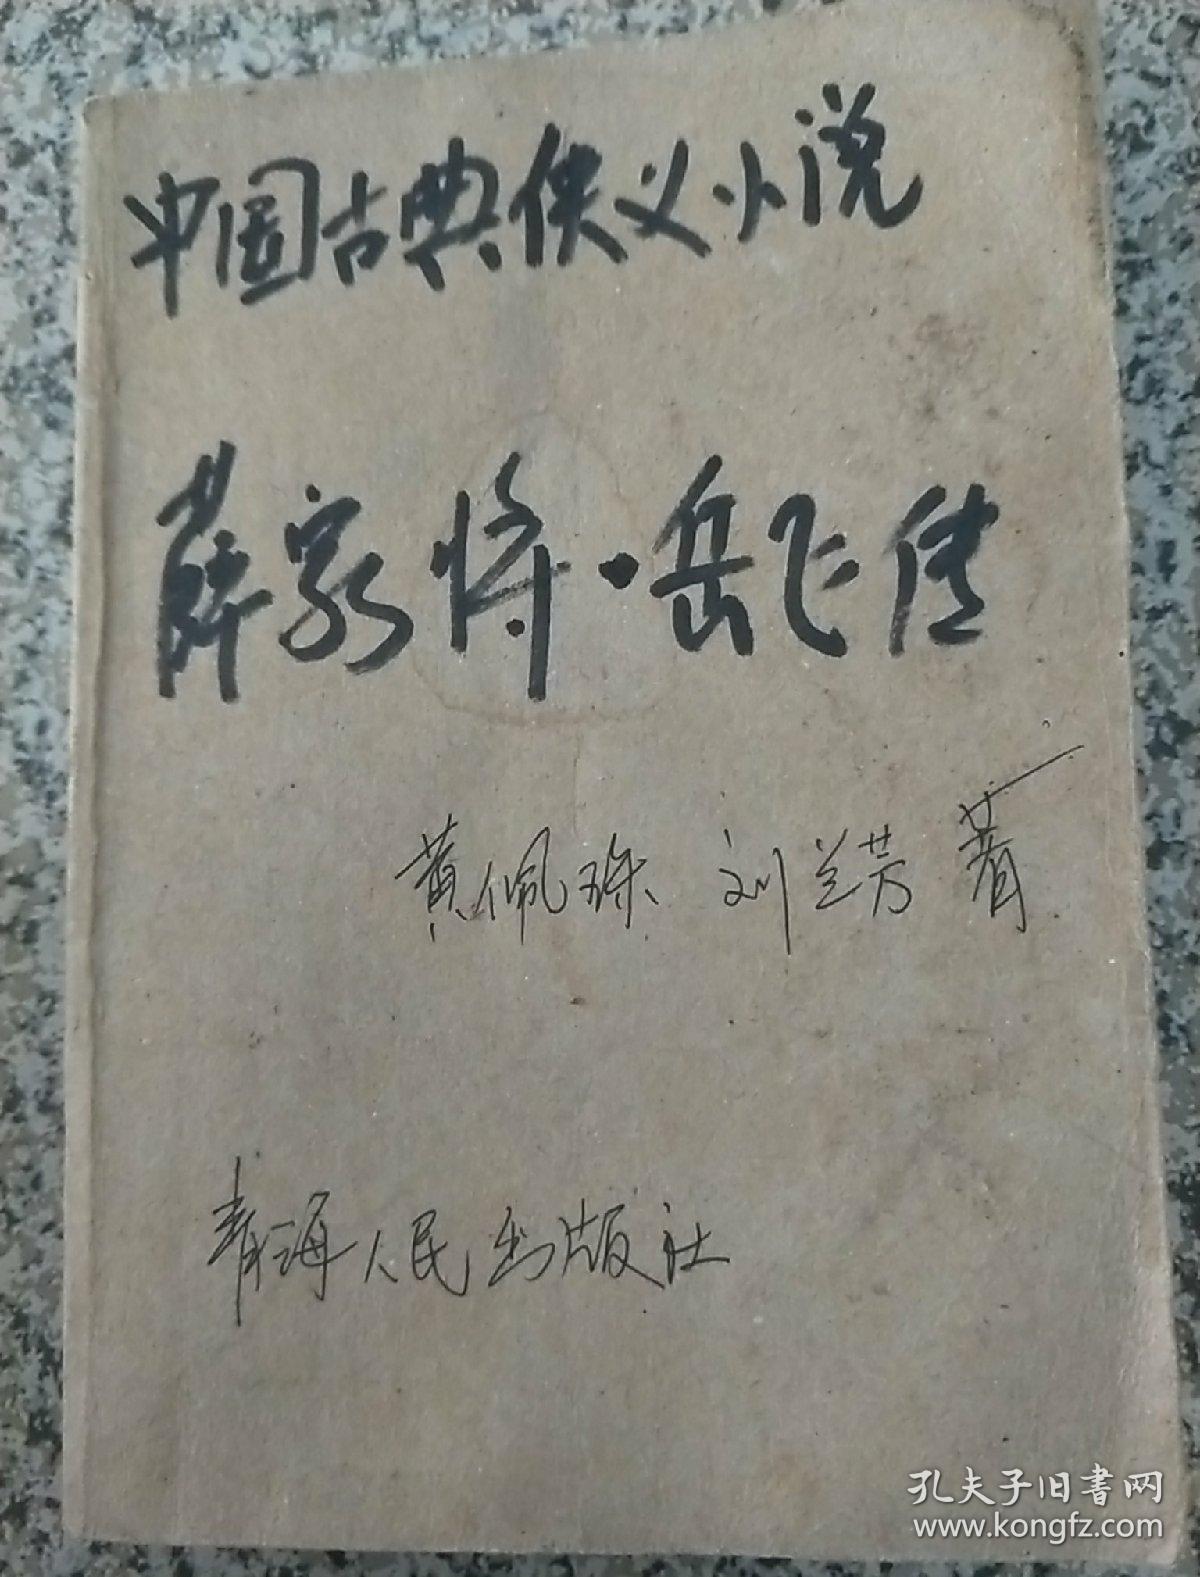 中国古典侠义小说
薛家将·岳飞传
黄佩珠 刘兰芳 著
青海人民出版社
孔夫子旧书网
www.kongfz.com